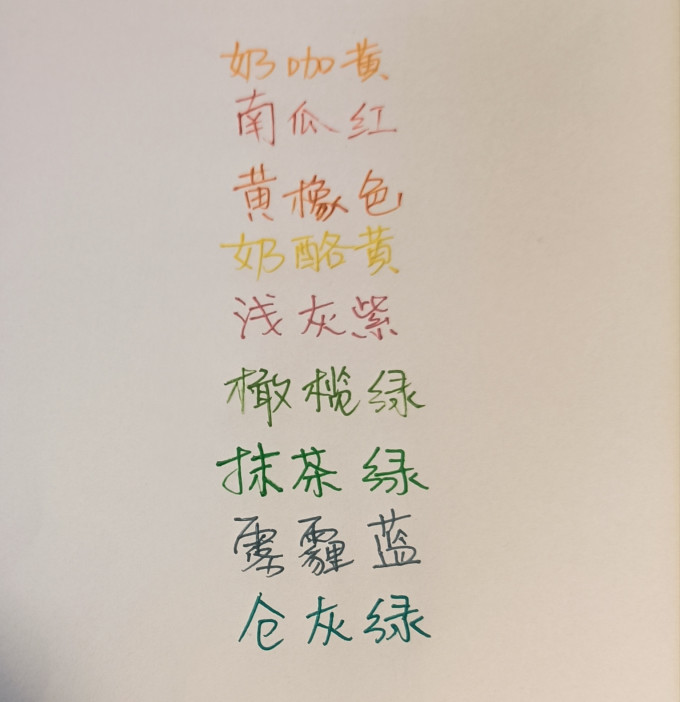 奶咖黄
南瓜红
黄橡色
奶酪黄
浅灰紫
橄榄绿
抹茶绿
雾霾蓝
仓灰绿